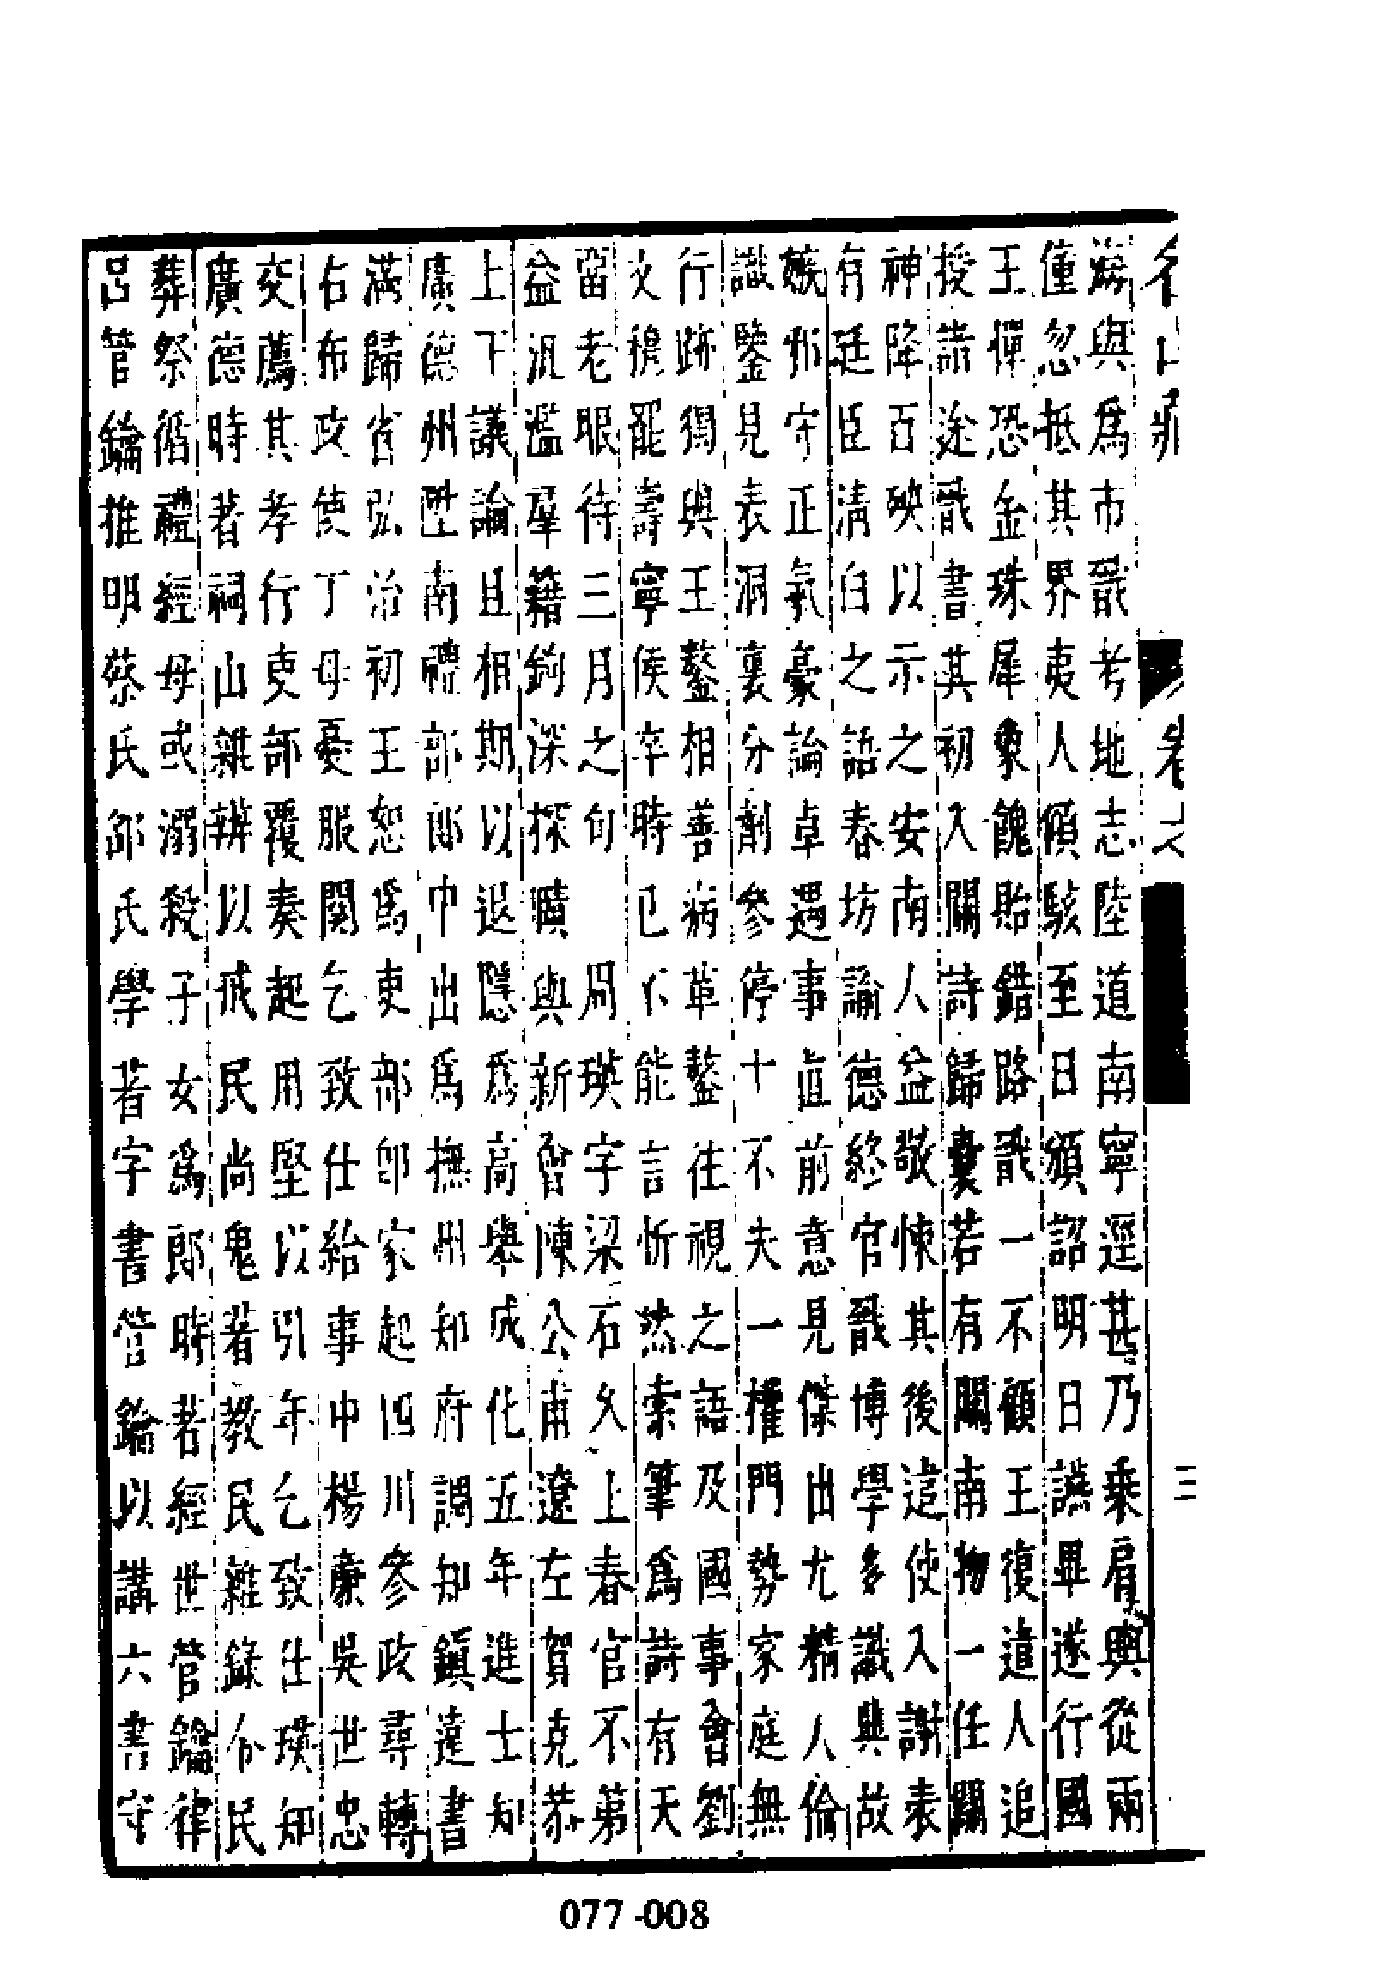 名山藏 卷之 三
海與為市戩考地志陸道南寧逕甚乃乘肩輿從兩
僮忽抵其界夷人傾駭至日頒詔明日讌畢遂行國
王憚恐金珠犀象餽貽錯路戩一不顧王復遣人追
授諸途戩書其初入關詩歸橐若有關南物一任關
神降百殃以示之安南人益敬悚其後遣使入謝表
有廷臣清白之語春坊諭德終官戩博學多識典故
嫉邪守正氣豪論卓遇事直前意見傑出尤精人倫
識鑒見表洞裏分劑參停十不失一權門勢家庭無
行跡獨與王鏊相善病革鏊往視之語及國事會劉
文穆罷壽寧侯卒時已不能言忻然索筆為詩有天
留老眼待三月之句　周瑛字梁石久上春官不第
益汎濫羣籍鉤深探賾與新會陳公甫遼左賀克恭
上下議論且相期以退隱為高舉成化五年進士知
廣德州陞南禮部郎中出為撫州知府調知鎮遠書
滿歸省弘治初王恕為吏部卽家起四川參政尋轉
右布政使丁母憂服闋乞致仕給事中楊廉吳世忠
交薦其孝行吏部覆奏起用堅以引年乞致仕瑛知
廣德時著祠山雜辨以戒民尚鬼著教民雜錄令民
葬祭循禮經母或溺殺子女為郎時著經世管鑰律
呂管鑰推明蔡氏邵氏學著字書管鑰以講六書守
077-008